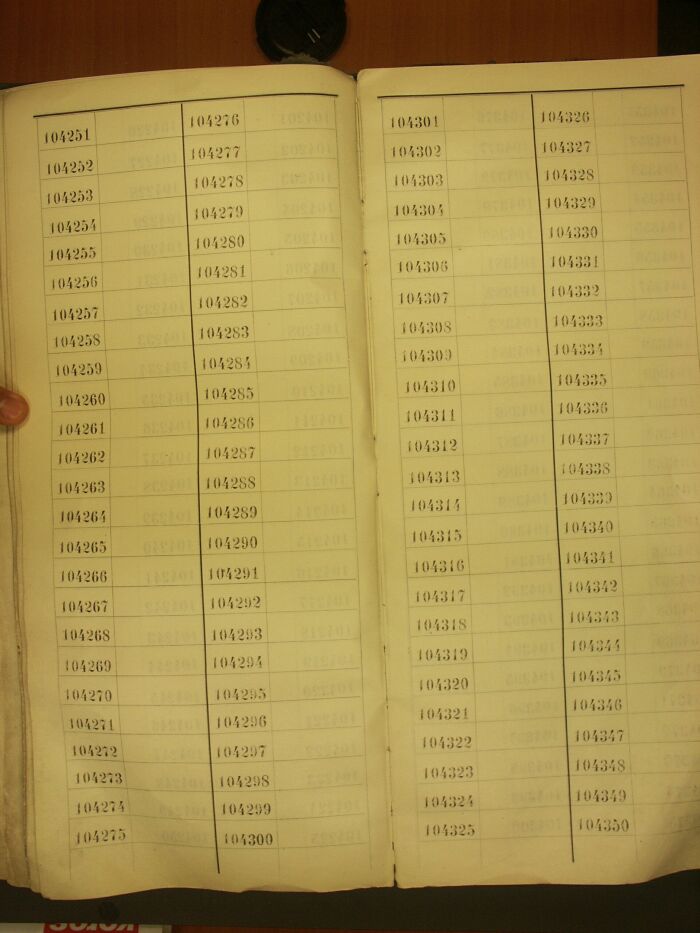 104251
104252
104253
104254
104255
104256
104257
104258
104259
104260
104261
104262
104263
104264
104265
104266
104267
104268
104269
104270
104271
104272
104273
104274
104275
104276
104277
104278
104279
104280
104281
104282
104283
104284
104285
104286
104287
104288
104289
104290
104291
104292
104293
104294
104295
104296
104297
104298
104299
104300
104301
104302
104303
104304
104305
104306
104307
104308
104309
104310
104311
104312
104313
104314
104315
104316
104317
104318
104319
104320
104321
104322
104323
104324
104325
104326
104327
104328
104329
104330
104331
104332
104333
104334
104335
104336
104337
104338
104339
104340
104341
104342
104343
104344
104345
104346
104347
104348
104349
104350